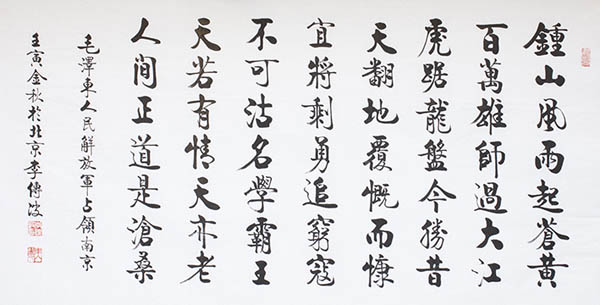 鍾山風雨起蒼黃
百萬雄師過大江
虎踞龍盤今勝昔
天翻地覆慨而慷
宜將剩勇追窮寇
不可沽名學霸王
天若有情天亦老
人间正道是滄桑
毛澤東人民解放軍占領南京
壬寅金秋於北京李傳波